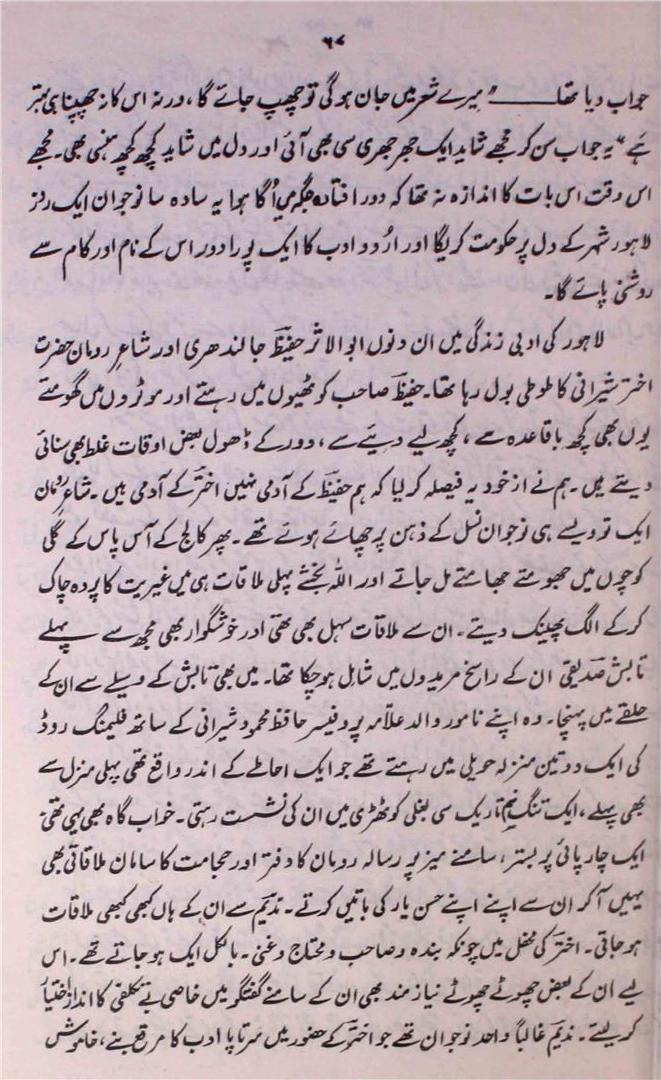 ۶۸
جواب دیا تھا ــــــــــ "میرے شعر میں جان ہوگی تو چھپ جائے گا، ورنہ اس کا نہ چھپنا ہی بہتر
ہے" یہ جواب سن کر مجھے شاید ایک جھرجھری سی بھی آئی اور دل میں شاید کچھ کچھ ہنسی بھی۔ مجھے
اس وقت اس بات کا اندازہ نہ تھا کہ دور افتادہ جگہ میں اُگا ہوا یہ سادہ سا نوجوان ایک روز
لاہور شہر کے دل پر حکومت کریگا اور اُردو ادب کا ایک پورا دور اس کے نام اور کام سے
روشنی پائے گا۔
لاہور کی ادبی زندگی میں ان دنوں ابوالاثر حفیظؔ جالندھری اور شاعرِ رومان حضرت
اخترؔ شیرانی کا طوطی بول رہا تھا۔ حفیظؔ صاحب کوٹھیوں میں رہتے اور موٹروں میں گھومتے
یوں بھی کچھ باقاعدہ سے، کچھ لیے دیئے سے، دور کے ڈھول بعض اوقات غلط بھی سنائی
دیتے ہیں۔ ہم نے از خود یہ فیصلہ کر لیا کہ ہم حفیظؔ کے آدمی نہیں اخترؔ کے آدمی ہیں۔ شاعرِ رومان
ایک تو ویسے ہی نوجوان نسل کے ذہن پر چھائے ہوئے تھے۔ پھر کالج کے آس پاس کے گلی
کوچوں میں جھومتے جھامتے مل جاتے اور اللہ بخشے پہلی ملاقات ہی میں غیریت کا پردہ چاک
کر کے الگ پھینک دیتے۔ ان سے ملاقات سہل بھی تھی اور خوشگوار بھی مجھ سے پہلے
تابش صدیقی ان کے راسخ مریدوں میں شامل ہو چکا تھا۔ میں بھی تابش کے وسیلے سے ان کے
حلقے میں پہنچا۔ وہ اپنے نامور والد علامہ پروفیسر حافظ محمود شیرانی کے ساتھ فلیمنگ روڈ
کی ایک دو تین منزلہ حویلی میں رہتے تھے جو ایک احاطے کے اندر واقع تھی پہلی منزل سے
بھی پہلے، ایک تنگ نیم تاریک سی بغلی کوٹھڑی میں ان کی نشست رہتی۔ خواب گاہ بھی یہی تھی
ایک چارپائی پر بستر، سامنے میز پر رسالہ رومان کا دفتر اور حجامت کا سامان ملاقاتی بھی
یہیں آ کر ان سے اپنے اپنے حسن یار کی باتیں کرتے۔ ندیمؔ سے ان کے ہاں کبھی کبھی ملاقات
ہو جاتی۔ اخترؔ کی محفل میں چونکہ بندہ و صاحب و محتاج و غنی۔ بالکل ایک ہو جاتے تھے۔ اس
لیے ان کے بعض چھوٹے چھوٹے نیاز مند بھی ان کے سامنے گفتگو میں خاصی بے تکلفی کا انداز اختیار
کر لیتے۔ ندیمؔ غالباً واحد نوجوان تھے جو اخترؔ کے حضور میں سرتاپا ادب کا مرقع بنے، خاموش